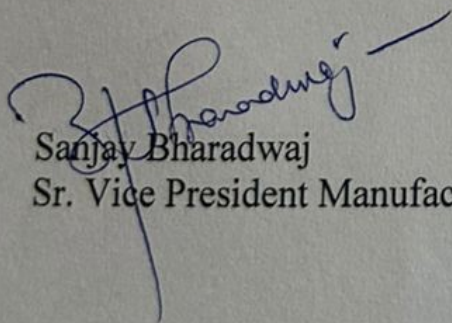 Bharadwaj
Sanjay Bharadwaj
Sr. Vice President Manufac